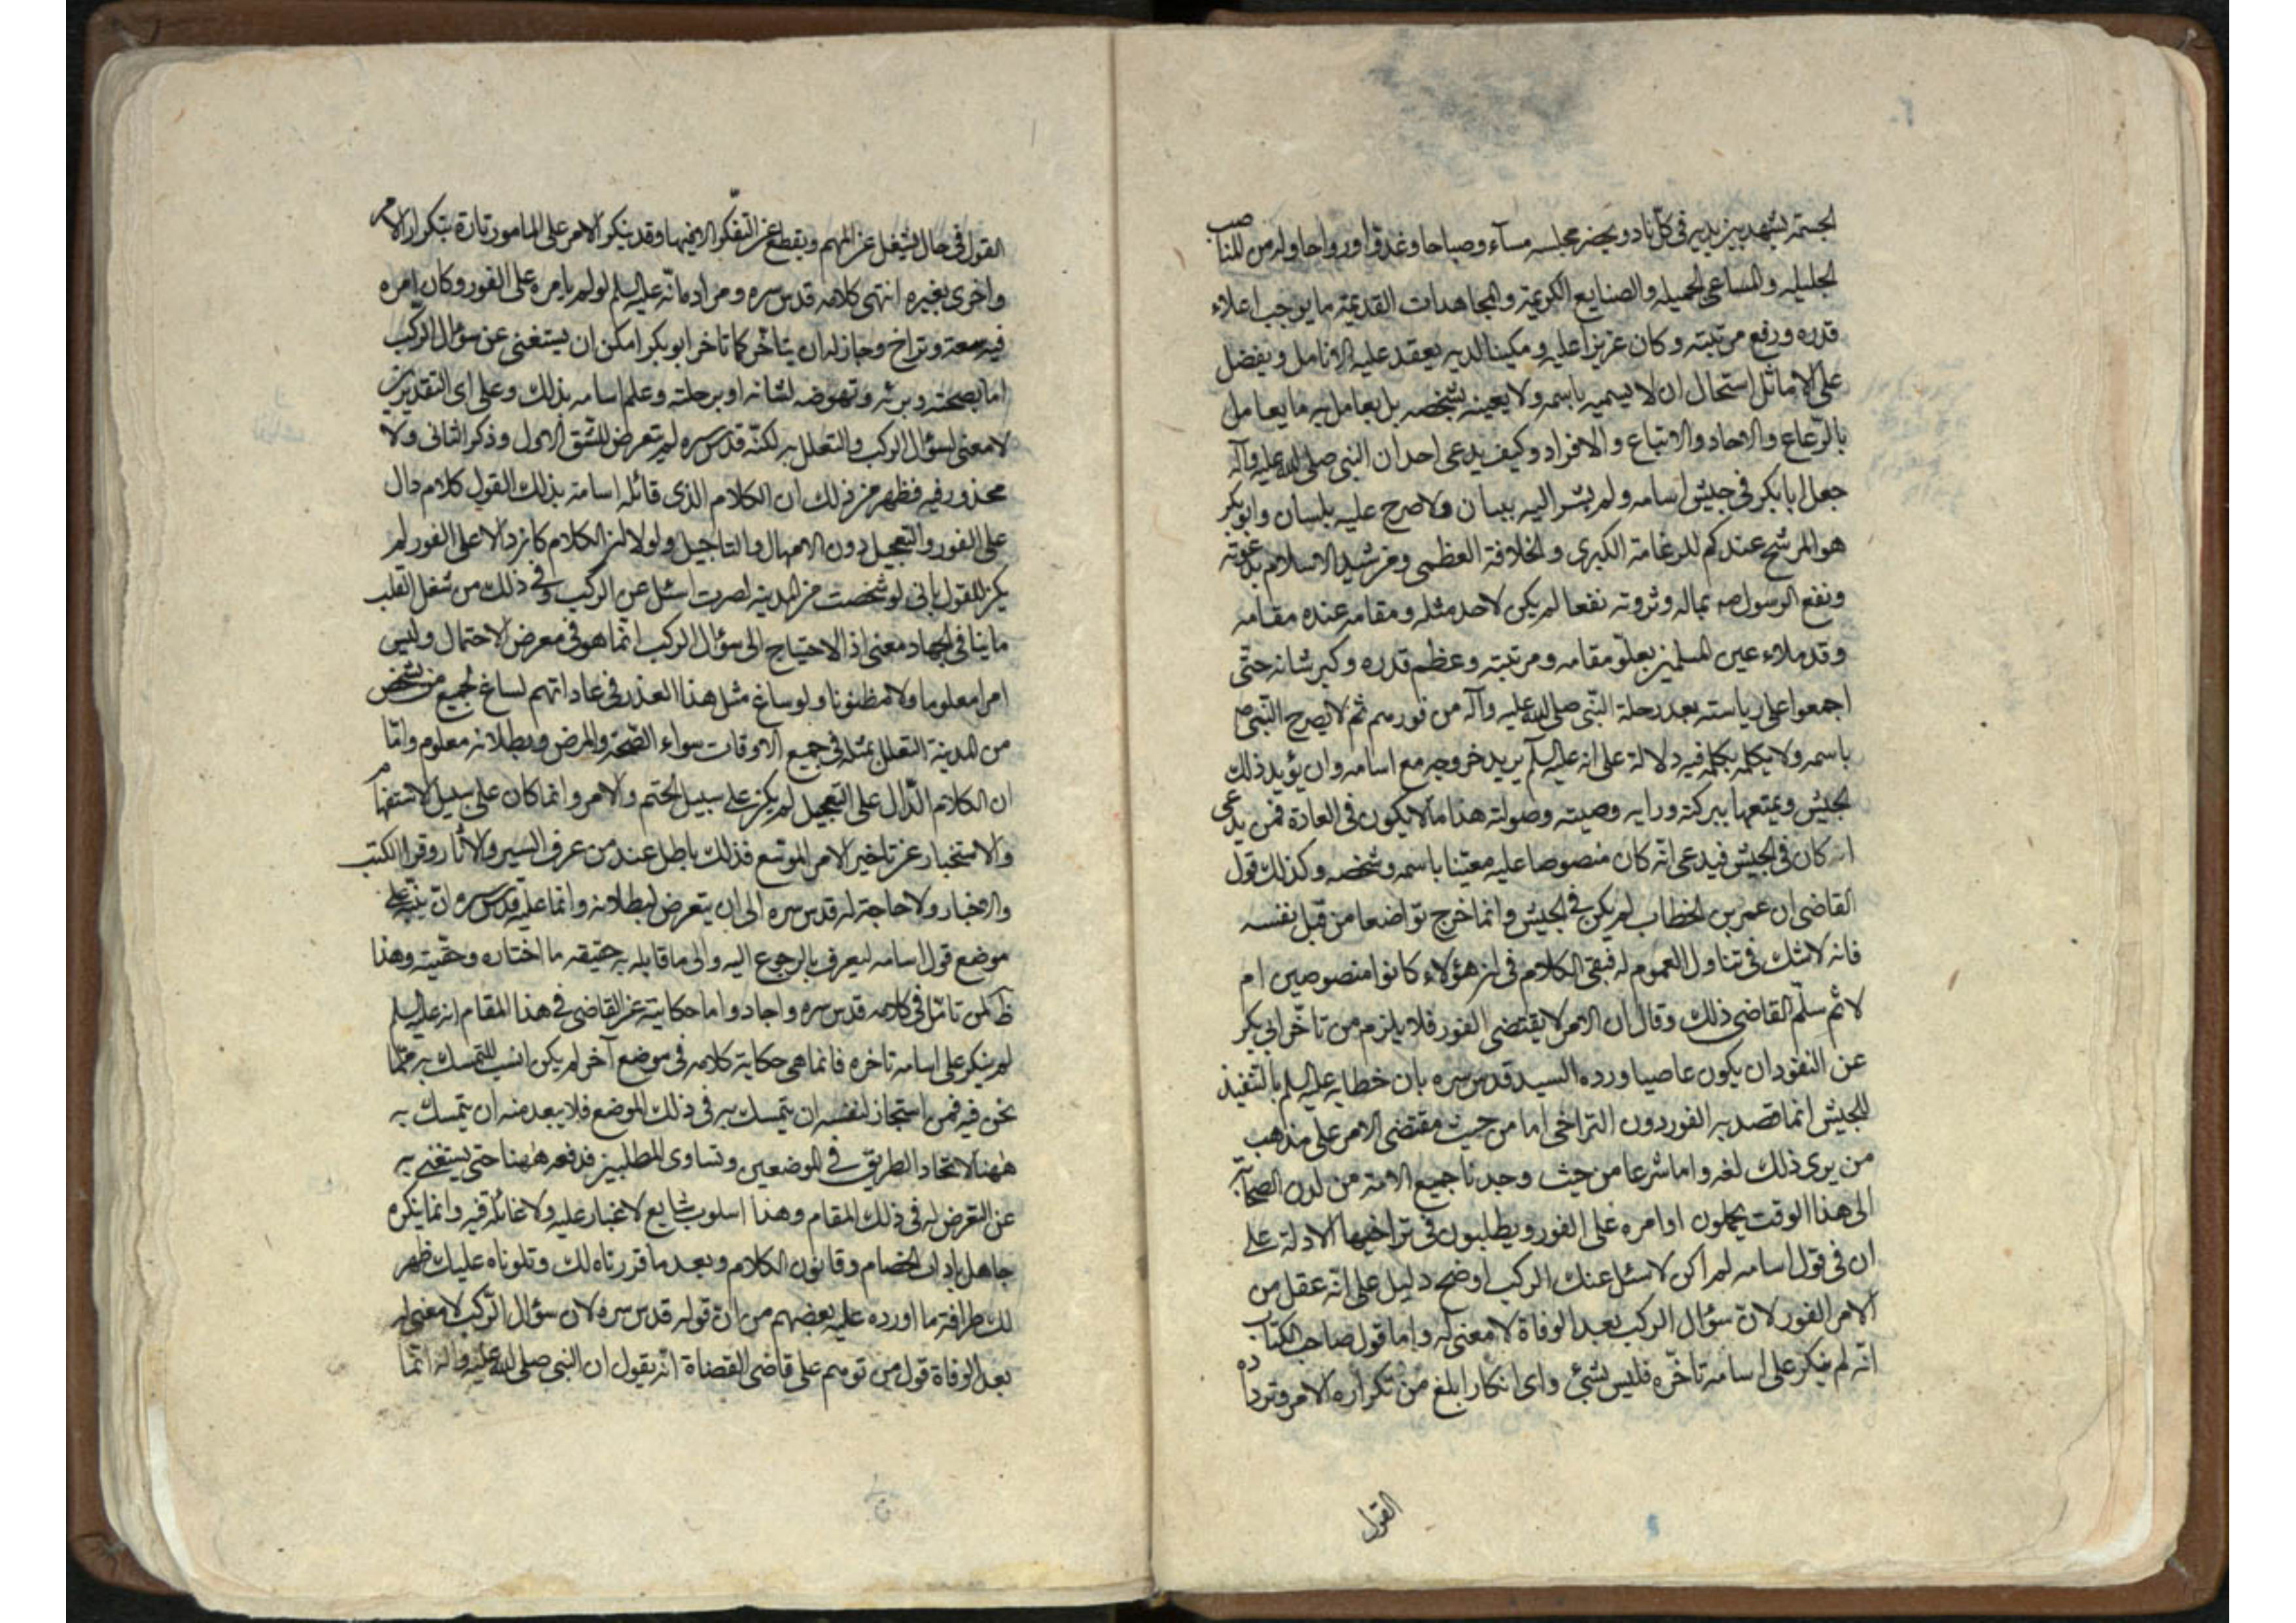 الجسمة يشهد بين يديه في كل ناد ويحضر مجلسه مساء وصباحا وغدوا ورواحا وله من المناصب
الجليله والمساعى الجميله والصنايع الكريمة والمجاهدات القديمة ما يوجب اعلاء
قدره ورفع مرتبته وكان عزيزا عليه ومكينا لديه يعقد عليه الانامل ويفضل
على الاماثل استحال ان لا يسميه باسمه ولا يعينه بشخصه بل يعامل به ما يعامل
بالرعاع والاحاد والاتباع والافراد وكيف يدعى احد ان النبى صلى الله عليه وآله
جعل ابا بكر في جيش اسامه ولم يشر اليه ببيان ولا صرح عليه بلسان وابو بكر
هو المرشح عندكم للزعامة الكبرى والخلافة العظمى ومن شيد الاسلام بدعوته
ونفع الرسول صه بماله وثروته نفعا لم يكن لاحد مثله ومقامه عنده مقامه
وقد ملاء عين المسلمين بعلو مقامه ومرتبته وعظم قدره وكبر شانه حتى
اجمعوا على رياسته بعد رحلة النبى صلى الله عليه وآله من فورهم ثم لا يصرح النبى ص
باسمه ولا يكلمه بكلمة فيه دلالة على انه عليه السلم يريد خروجه مع اسامه وان يؤيد ذلك
الجيش ويمتعها ببركته ورايه وصيته وصولته هذا ما لا يكون في العادة فمن يدعى
انه كان في الجيش فيدعى انه كان منصوصا عليه معينا باسمه وشخصه وكذلك قول
القاضى ان عمر بن الخطاب لم يكن في الجيش وانما خرج تواضعا من قبل نفسه
فانه لا شك في تناول العموم له فبقى الكلام في ان هؤلاء كانوا منصوصين ام
لا ثم سلم القاضى ذلك وقال ان الامر لا يقتضى الفور فلا يلزم من تاخر ابي بكر
عن النفوذ ان يكون عاصيا ورده السيد قدس سره بان خطابه عليه السلم بالتنفيذ
للجيش انما قصد به الفور دون التراخى اما من حيث مقتضى الامر على مذهب
من يرى ذلك لغه واما شرعا من حيث وجدنا جميع الامة من لدن الصحابة
الى هذا الوقت يحملون اوامره على الفور ويطلبون في تراخيها الادلة على
ان في قول اسامه لم اكن لاسئل عنك الركب اوضح دليل على انه عقل من
الامر الفور لان سؤال الركب بعد الوفاة لا معنى له واما قول صاحب الكتاب
انه لم ينكر على اسامه تاخره فليس بشئ واى انكار ابلغ من تكراره الامر وترداده
القول
القول في حال يشغل عن المهم ويقطع عن التفكر الا فيها وقد ينكر الامر على المامور تارة بتكرار الامر
واخرى بغيره انتهى كلامه قدس سره ومراده انه عليه السلم لو لم يامره على الفور وكان امره
فيه سعة وتراخ وجاز له ان يتاخر كما تاخر ابو بكر امكن ان يستغنى عن سؤال الركب
اما بصحته وبرئه ونهوضه لشانه او برحلته وعلم اسامه بذلك وعلى اى التقديرين
لا معنى لسؤال الركب والتعلل به لكنه قدس سره لم يتعرض للشق الاول وذكر الثانى ولا
محذور فيه فظهر من ذلك ان الكلام الذى قائله اسامة بذلك القول كلام دال
على الفور والتعجيل دون الامهال والتاجيل ولولا ان الكلام كان دالا على الفور لم
يكن للقول بانى لو شخصت من المدينه لصرت اسئل عن الركب وفي ذلك من شغل القلب
ما ينافى الجهاد معنى اذ الاحتياج الى سؤال الركب انما هو في معرض الاحتمال وليس
امرا معلوما ولا مظنونا ولو ساغ مثل هذا العذر في عاداتهم لساغ لجميع من شخص
من المدينة التعلل بمثله في جميع الاوقات سواء الصحة والمرض وبطلانه معلوم واما
ان الكلام الدال على التعجيل لم يكن على سبيل الحتم والامر وانما كان على سبيل الاستفهام
والاستخبار عن تاخير الامر الموسع فذلك باطل عند من عرف السير والاثار وقرا الكتب
والاخبار ولا حاجة له قدس سره الى ان يتعرض لبطلانه وانما عليه قدس سره ان ينبه على
موضع قول اسامه ليعرف بالرجوع اليه والى ما قابله به حقيقه ما اختاره وحقيته وهذا
ظ لمن تامل في كلامه قدس سره واجاد واما حكايته عن القاضى في هذا المقام انه عليه السلم
لم ينكر على اسامه تاخره فانما هى حكاية كلامه في موضع آخر لم يكن انسب للتمسك به مما
نحن فيه فمن استجاز لنفسه ان يتمسك به في ذلك الموضع فلا يبعد منه ان يتمسك به
ههنا لاتحاد الطريق في الموضعين وتساوى المطلبين فدفعه ههنا حتى يستغنى به
عن التعرض له في ذلك المقام وهذا اسلوب شايع لا غبار عليه ولا غائلة فيه وانما ينكره
جاهل باداب الخصام وقانون الكلام وبعد ما قررناه لك وتلوناه عليك ظهر
لك طرافة ما اورده عليه بعضهم من ان قوله قدس سره لان سؤال الركب لا معنى له
بعد الوفاة قول من توهم على قاضى القضاة انه يقول ان النبى صلى الله عليه وآله انما